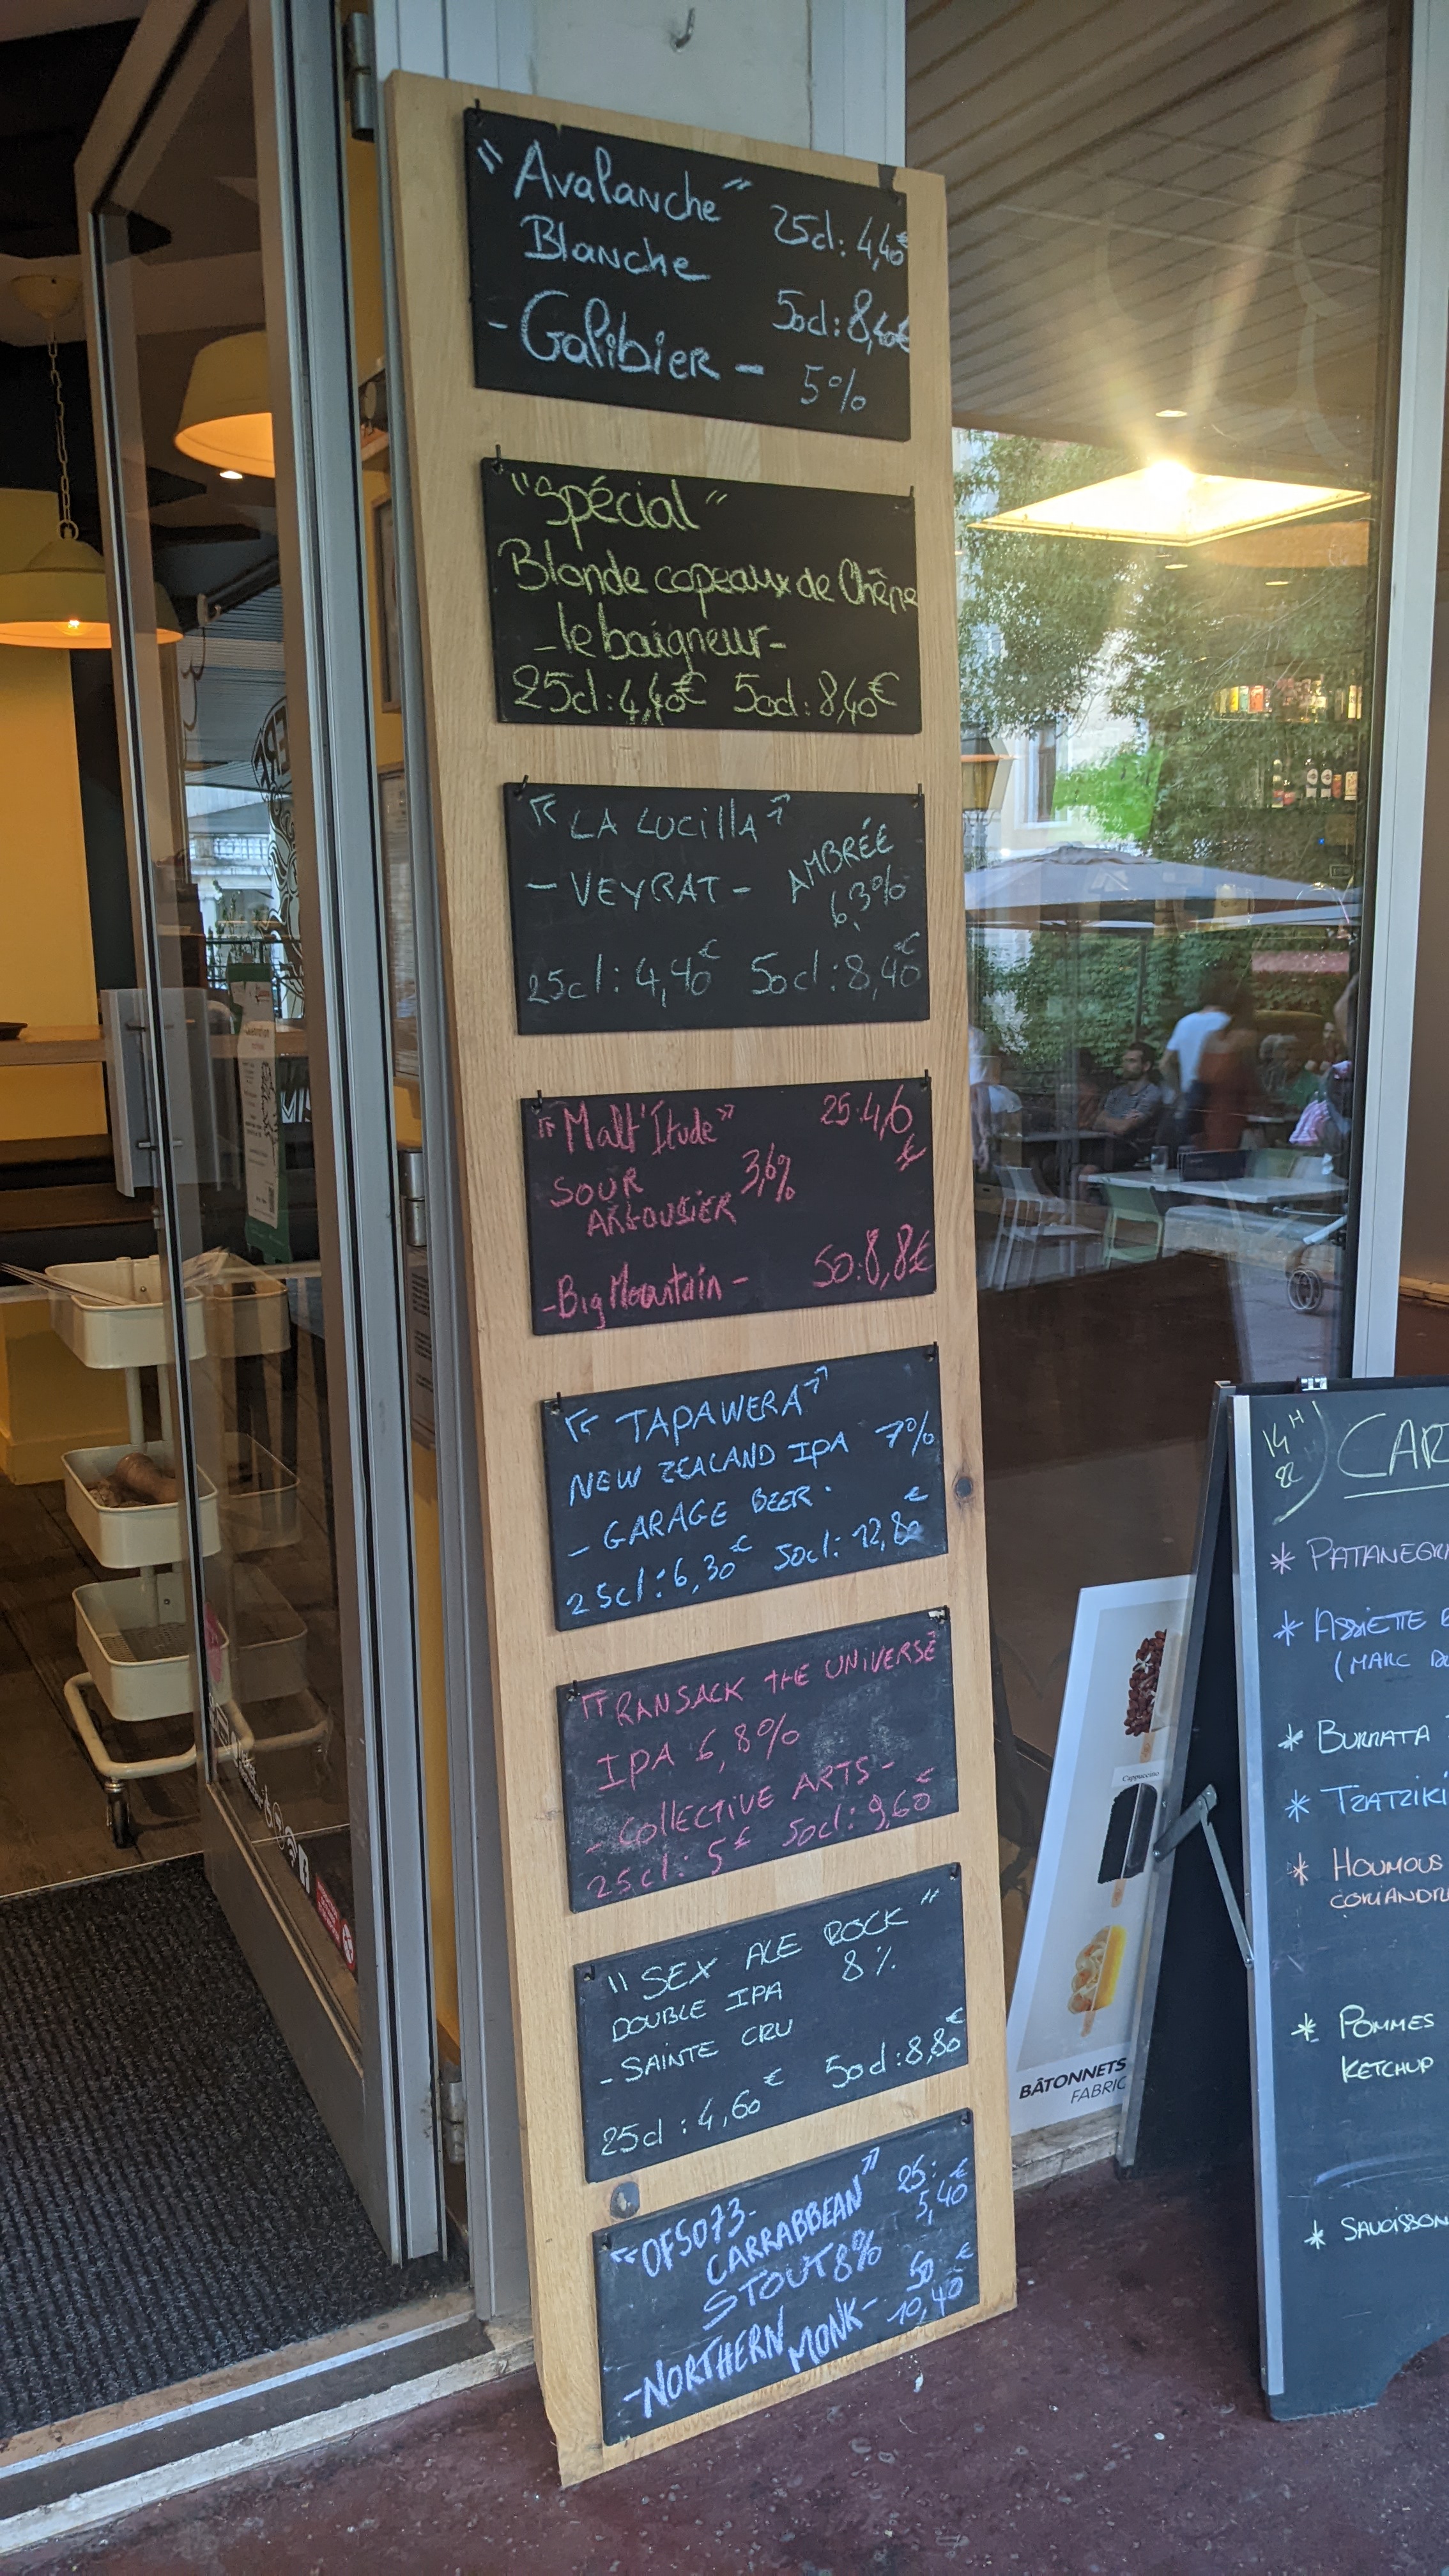 "Avalanche"
Blanche
- Galibier -
25cl: 4,40€
50cl: 8,40€
5%
"Spécial"
Blonde copeaux de Chêne
- le baigneur -
25cl: 4,40€ 50cl: 8,40€
"LA LUCILLA"
- VEYRAT -
AMBRÉE
6,3%
25cl: 4,40€ 50cl: 8,40€
"Malt'Itude"
25: 4,6€
SOUR
3,6%
ARGOUSIER
- Big Mountain -
50: 8,8€
"TAPAWERA"
NEW ZEALAND IPA 7%
- GARAGE BEER -
25cl: 6,30€ 50cl: 12,80€
"RANSACK THE UNIVERSE"
IPA 6,8%
- COLLECTIVE ARTS -
25cl: 5€ 50cl: 9,60€
"SEX ALE ROCK"
DOUBLE IPA 8%
- SAINTE CRU
25cl: 4,60€ 50cl: 8,80€
"OFS073-
CARRABBEAN"
STOUT 8%
- NORTHERN
MONK -
25: 5,40€
50 10,40€
14H
22
CAR
* PATANEGR
* ASSIETTE
(MARC
* BURRATA
* TZATZIKI
* HOUMOUS
CORIANDR
* POMMES
KETCHUP
* SAUCISSON
Cappuccino
BÂTONNETS
FABRIC